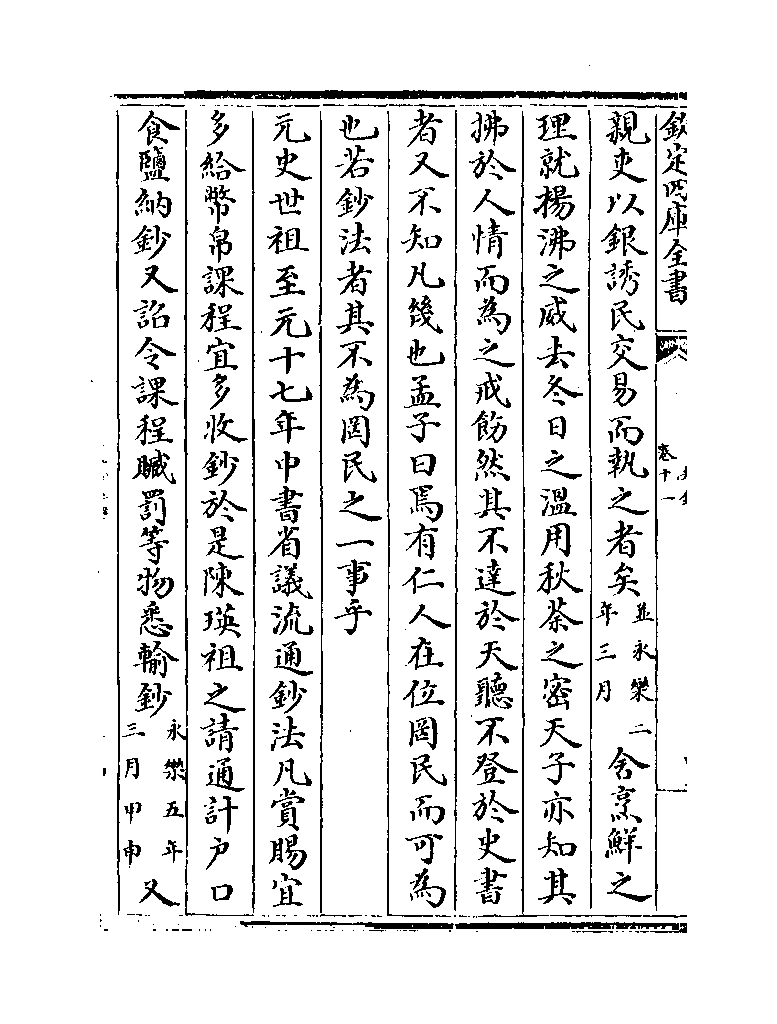 欽定四庫全書
卷十一
親吏以銀誘民交易而執之者矣並永樂二年三月舍烹鮮之
理就揚沸之威去冬日之溫用秋荼之密天子亦知其
拂於人情而為之戒飭然其不達於天聽不登於史書
者又不知凡幾也孟子曰焉有仁人在位罔民而可為
也若鈔法者其不為罔民之一事乎
元史世祖至元十七年中書省議流通鈔法凡賞賜宜
多給幣帛課程宜多收鈔於是陳瑛祖之請通計户口
食鹽納鈔又詔令課程贓罰等物悉輸鈔永樂五年三月甲申又